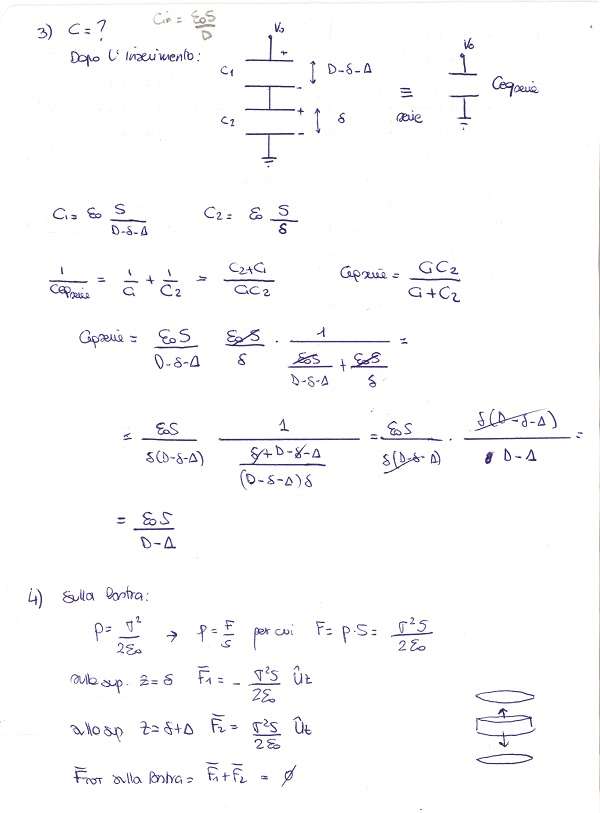 3) C = ? Cin = ε₀S/D
Dopo l'inserimento:
V₀
+
C1
D-δ-Δ
-
+
C2
δ
-
≡
serie
V₀
Ceqserie
C₁ = ε₀ S/(D-δ-Δ) C₂ = ε₀ S/δ
1/Ceqserie = 1/C₁ + 1/C₂ = (C₂+C₁)/(C₁C₂) Ceqserie = C₁C₂/(C₁+C₂)
Ceqserie = ε₀S/(D-δ-Δ) ε₀S/δ · 1/(ε₀S/(D-δ-Δ) + ε₀S/δ) =
= ε₀S/(δ(D-δ-Δ)) 1/((δ+D-δ-Δ)/((D-δ-Δ)δ)) = ε₀S/(δ(D-δ-Δ)) · δ(D-δ-Δ)/(D-Δ) =
= ε₀S/(D-Δ)
4) Sulla lastra:
p = σ²/2ε₀ → p = F/S per cui F = p·S = σ²S/2ε₀
sulla sup. z = δ F̄₁ = - σ²S/2ε₀ ûz
sulla sup z = δ+Δ F̄₂ = σ²S/2ε₀ ûz
F̄TOT sulla lastra = F̄₁ + F̄₂ = ∅